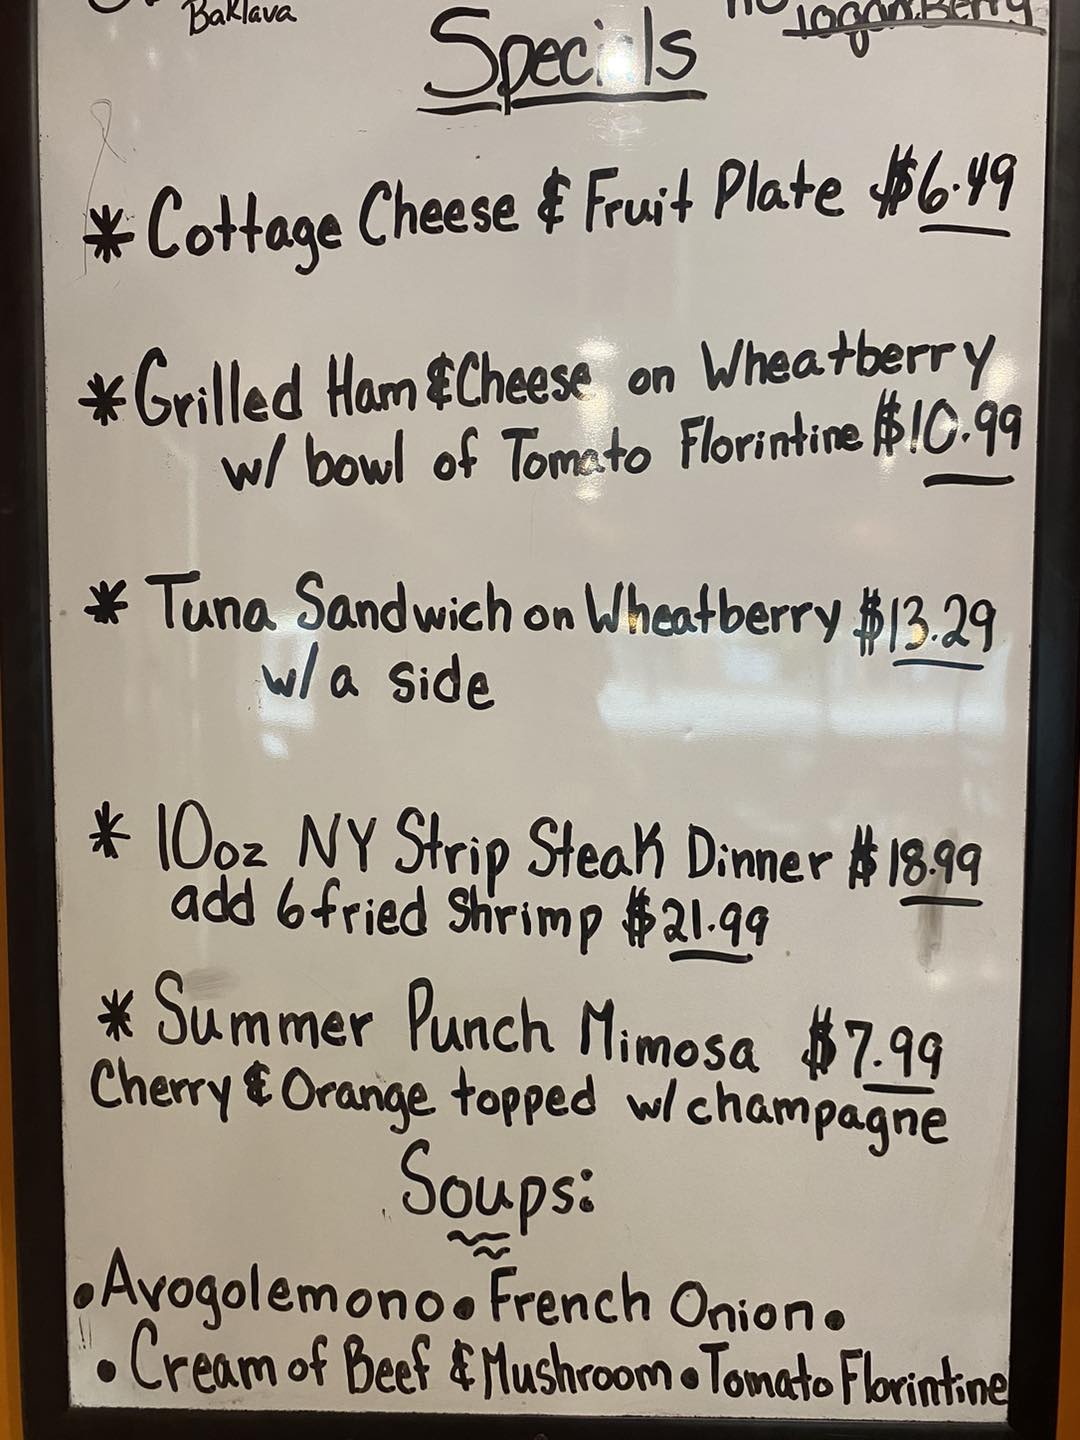 Baklava
no loganberry
Specials
* Cottage Cheese & Fruit Plate $6.49
* Grilled Ham & Cheese on Wheatberry
w/ bowl of Tomato Florintine $10.99
* Tuna Sandwich on Wheatberry $13.29
w/ a side
* 10oz NY Strip Steak Dinner $18.99
add 6 fried shrimp $21.99
* Summer Punch Mimosa $7.99
Cherry & Orange topped w/ champagne
Soups:
• Avogolemono • French Onion •
• Cream of Beef & Mushroom • Tomato Florintine